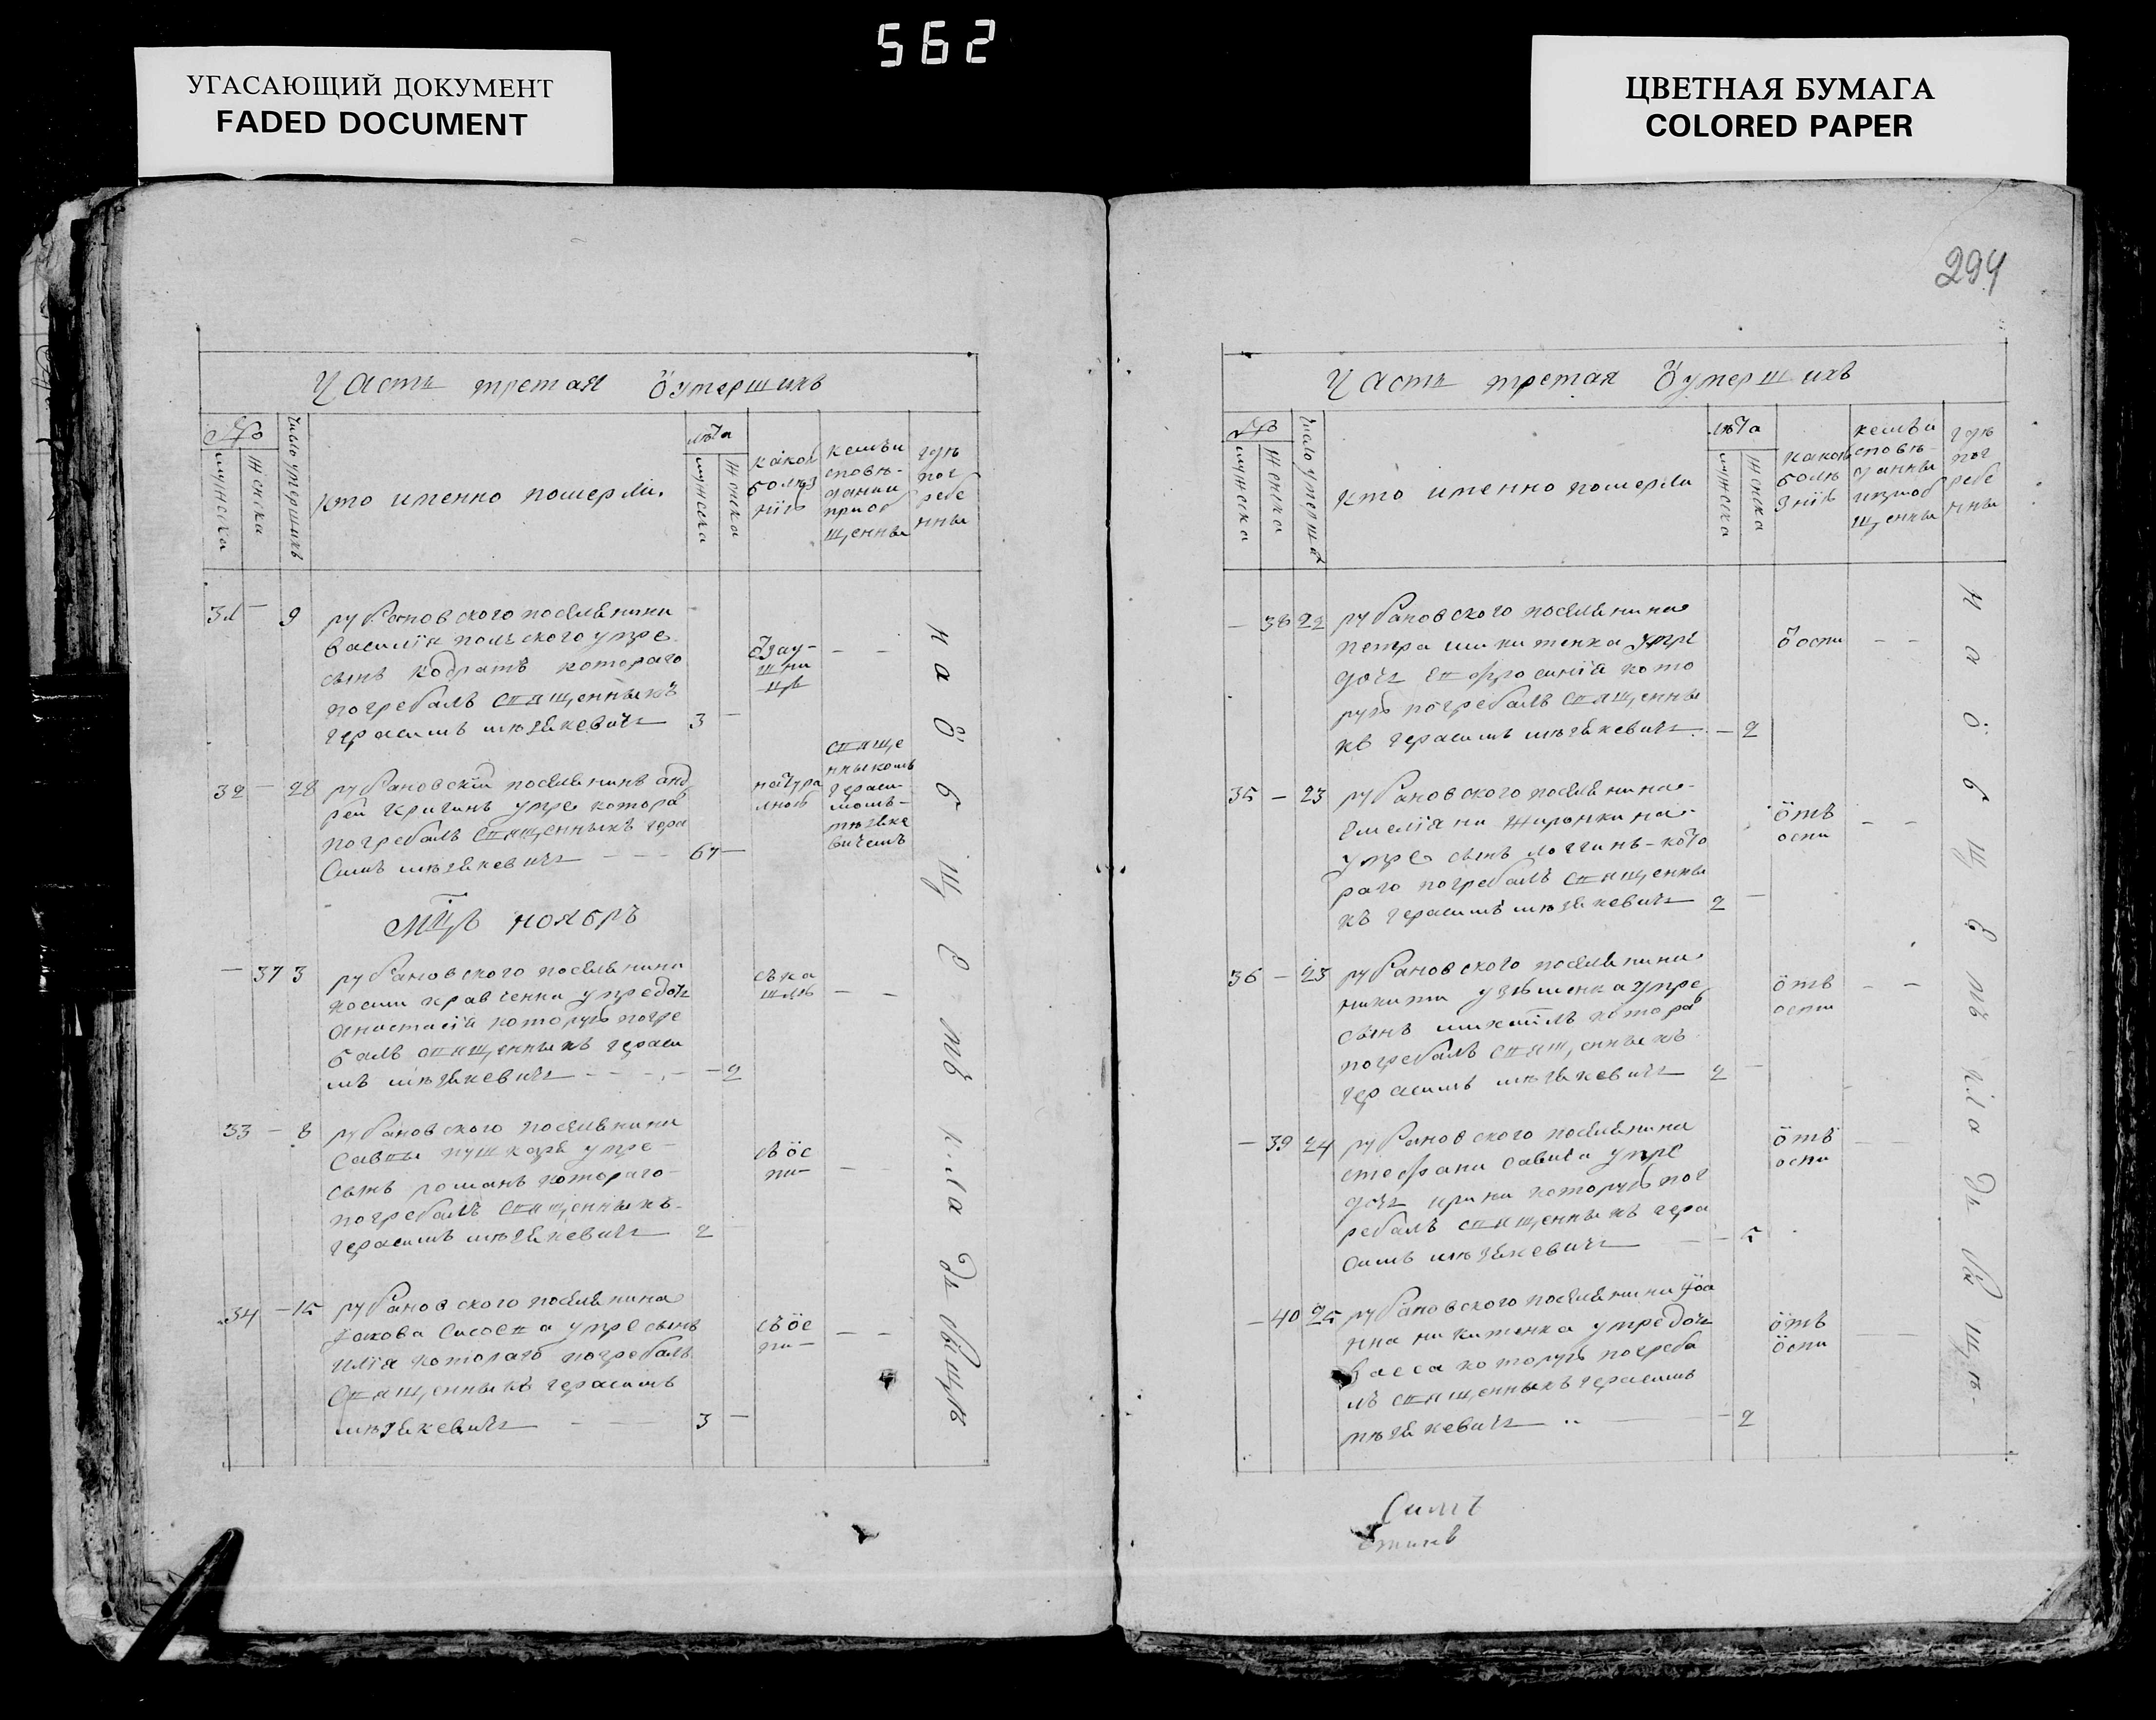 562
УГАСАЮЩИЙ ДОКУМЕНТ
FADED DOCUMENT
ЦВЕТНАЯ БУМАГА
COLORED PAPER
Часть третая ѽ умершихъ
мужеска
женска
число умершихъ
кто именно померли.
лѣта
мужеска
женска
какою
болѣз
нію
кемъ и
сповѣ-
данни
приоб
щенны
гдѣ
пог
ребе
нны
31 — 9
рубановского поселянина
василія полъского умре
сынъ кодратъ которого
погребалъ священникъ
герасимъ
3 —
32 — 28
рубановскій поселянинъ анд
рей кричинъ умре котора
погребалъ священникъ гера
симъ
67 —
натура
лною
священ
нникомъ
гераси
момъ
Мцъ ноябръ
— 37 3
рубановского поселянина
косми кравченка умре дочь
анастасія которую погре
балъ священникъ гераси
мъ
— 2
съ ка
шлю
— —
33 — 8
рубановского поселянина
саввы пушкаря умре
сынъ романъ которого
погребалъ священникъ
герасимъ
2
съ ѽс
пи
—
34 — 15
рубановского поселянина
якова сисоева умре сынъ
илія которого погребалъ
священникъ герасимъ
3 —
съ ѽс
пи
— —
на ѽбщемъ кладьбищѣ
294
Часть третая ѽ умершихъ
мужеска
женска
число умерших
кто именно померли
лѣта
мужеска
женска
какою
болѣ
знію
кемъ и
сповѣ-
данны
и приоб
щенны
гдѣ
пог
ребе
нны
— 38 22
рубановского поселянина
петра микитенка умре
дочь евфросинія кото
рую погребалъ священны
къ герасимъ
— 2
ѽ оспи
— —
35 — 23
рубановского поселянина
емеліяна
умре сынъ логгинъ кото
раго погребалъ священны
къ герасимъ
2 —
ѽтъ
оспи
— —
36 — 23
рубановского поселянина
никити умре
сынъ михаилъ котора
погребалъ священникъ
герасимъ
2 —
ѽтъ
оспи
— —
— 39 24
рубановского поселянина
стефана савича умре
дочь ирина которую пог
ребалъ священникъ гера
симъ
— 5
ѽтъ
оспи
— 40 25
рубановского поселянина іѽа
нна никитенка умре дочь
васса которую погреба
лъ священникъ герасимъ
— 2
ѽтъ
ѽспи
на ѽбщемъ кладьбищѣ